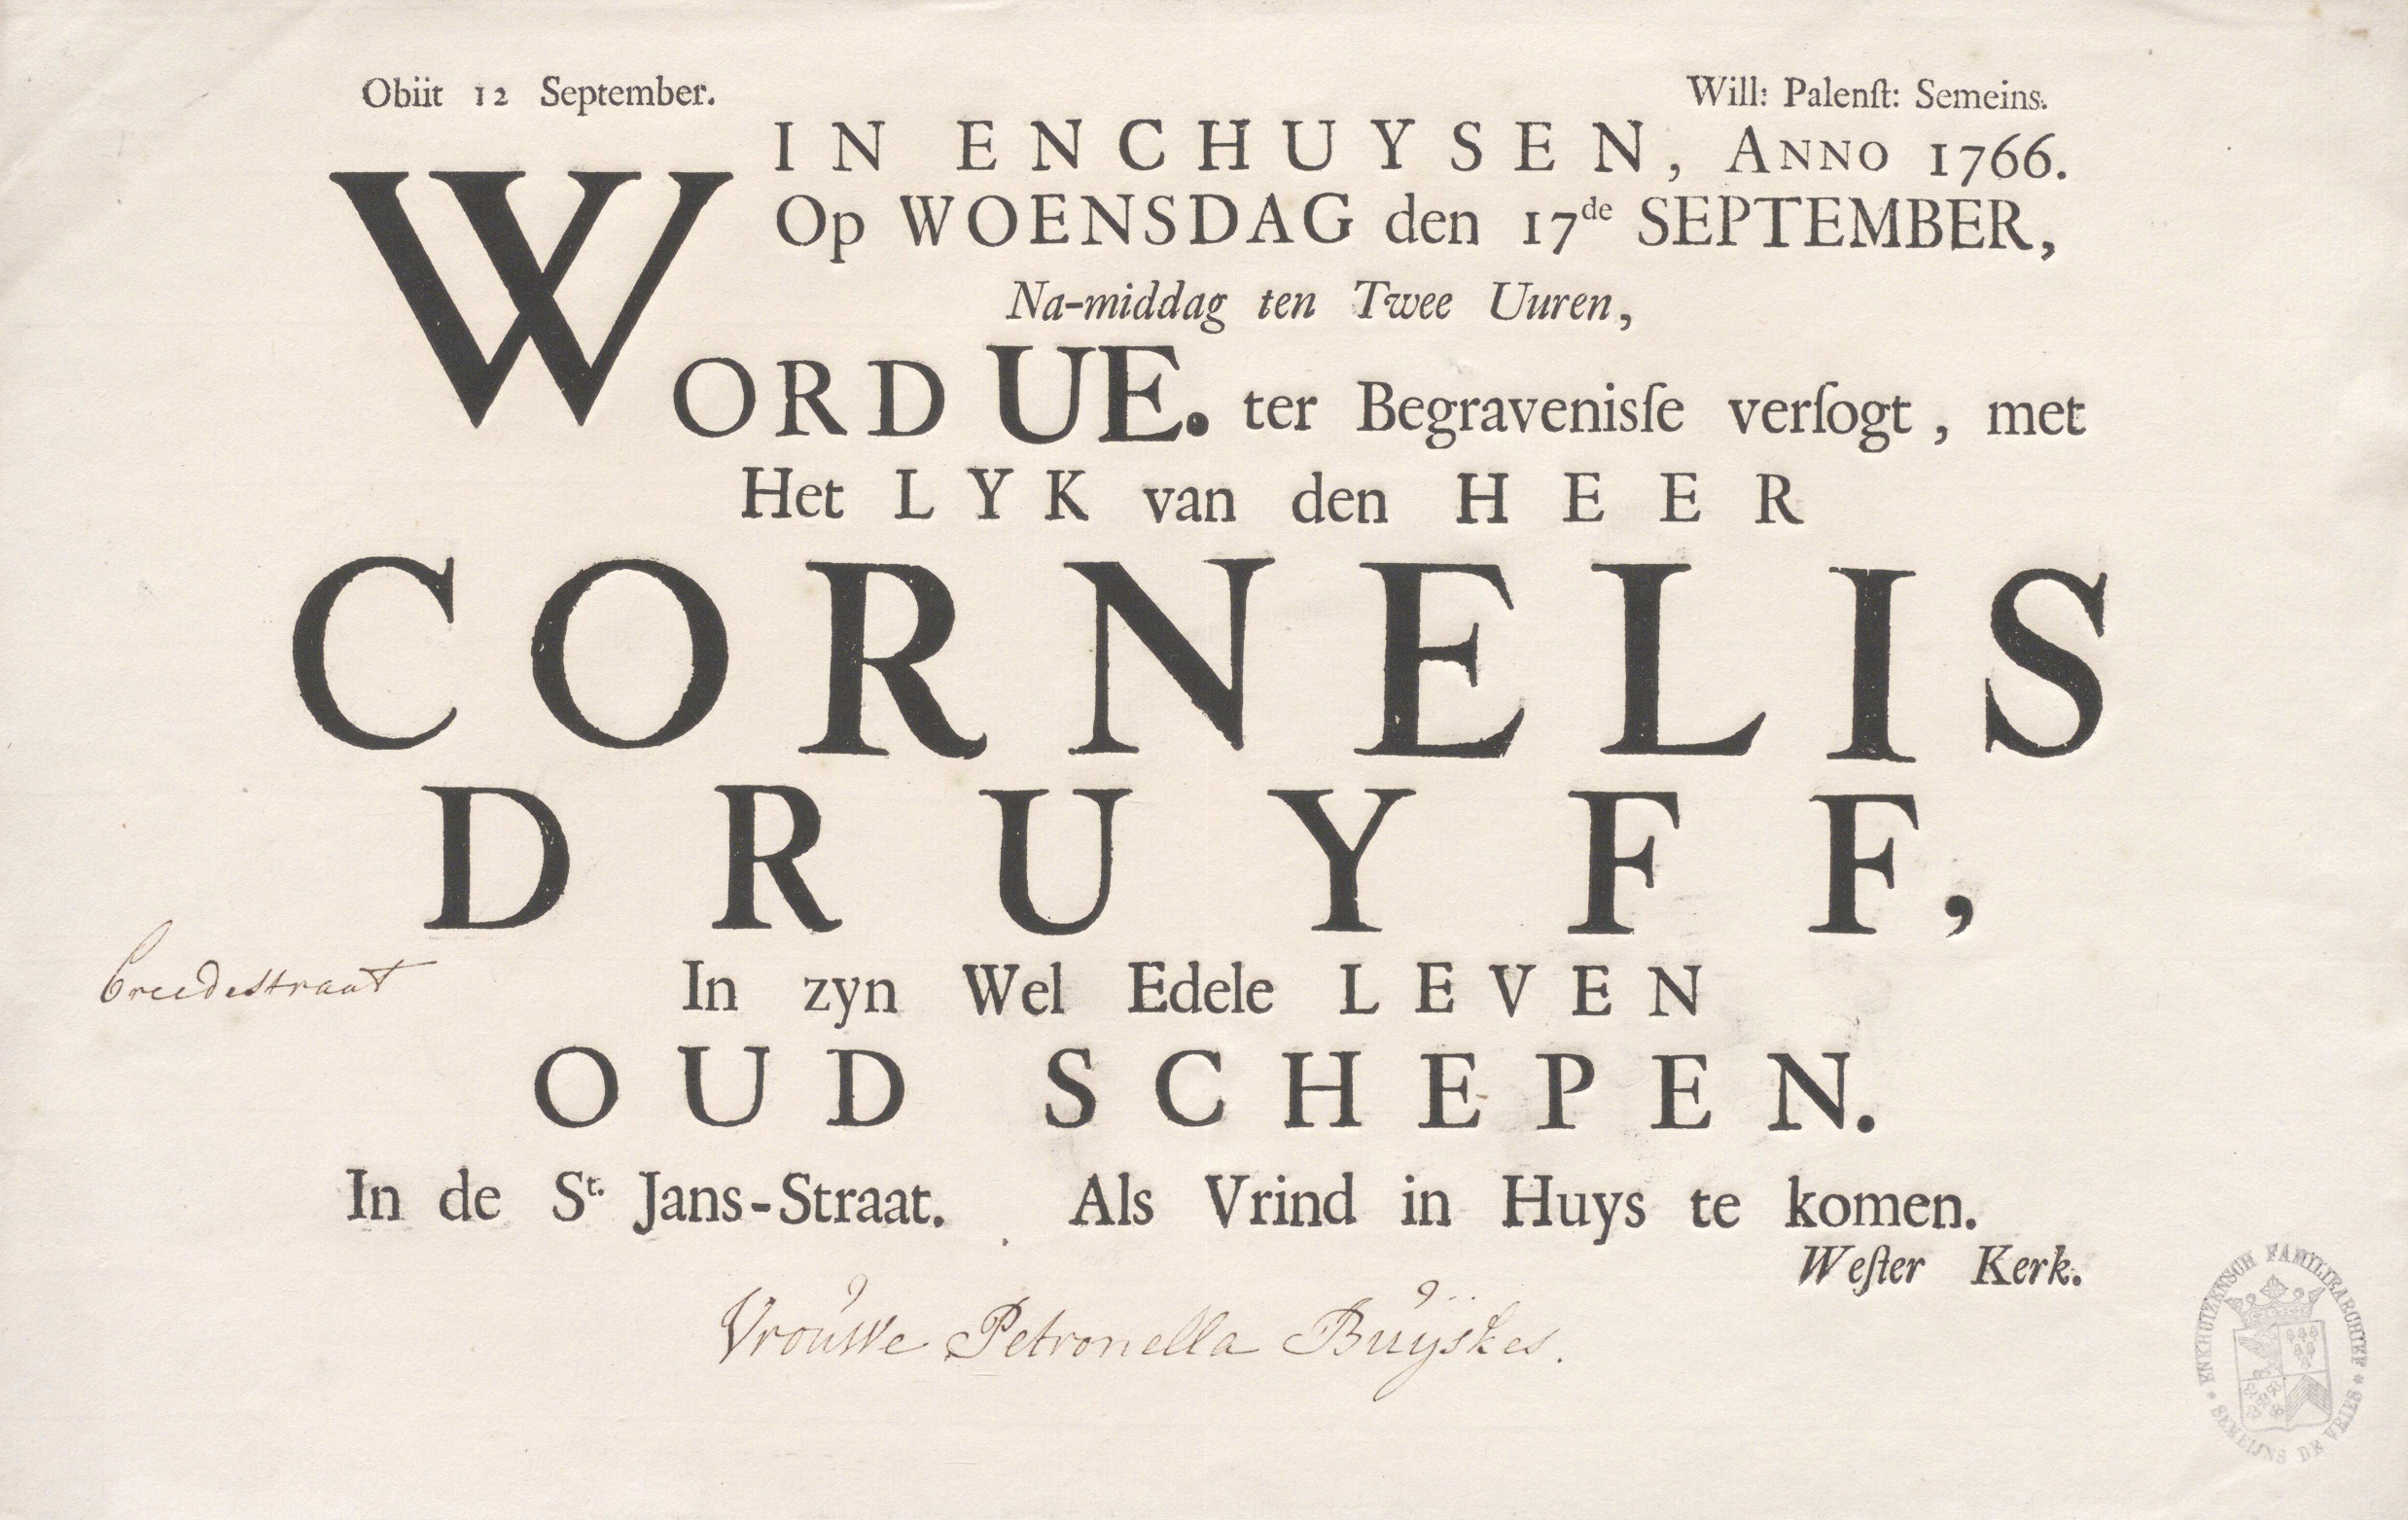 Obiit 12 September.
Will: Palenſt: Semeins.
IN ENCHUYSEN, ANNO 1766.
Op WOENSDAG den 17de SEPTEMBER,
Na-middag ten Twee Uuren,
WORD UE. ter Begravenisſe verſogt, met
Het LYK van den HEER
CORNELIS
DRUYFF,
breedestraat
In zyn Wel Edele LEVEN
OUD SCHEPEN.
In de St. Jans-Straat. Als Vrind in Huys te komen.
Weſter Kerk.
Vrouwe Petronella Buÿskes.
ENKHUIZENSCH FAMILIEARCHIEF
* SEMEIJNS DE VRIES *